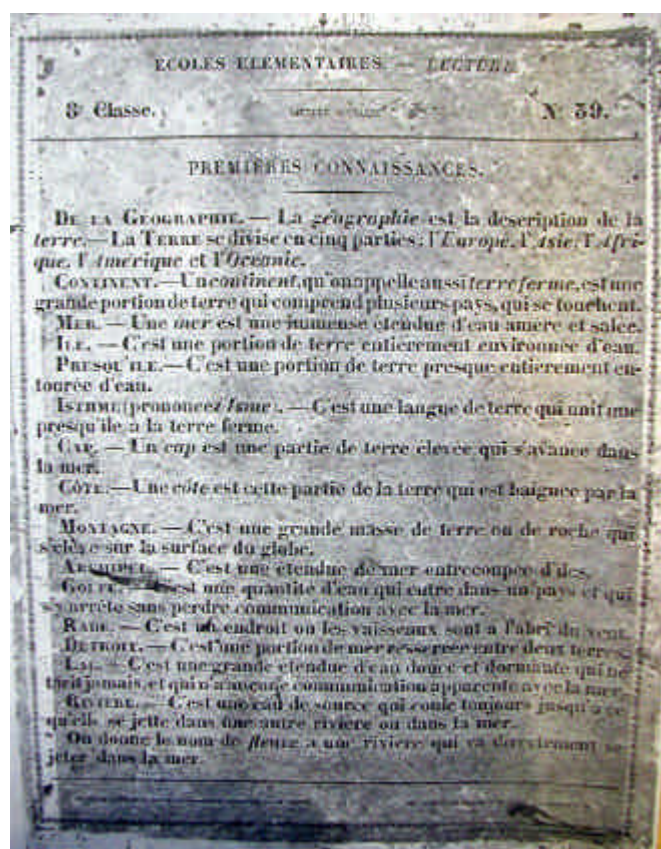 ECOLES ELEMENTAIRES. — LECTURE.
8e Classe.
N° 39.
PREMIÈRES CONNAISSANCES.
DE LA GÉOGRAPHIE. — La géographie est la description de la
terre. — La TERRE se divise en cinq parties : l'Europe, l'Asie, l'Afri-
que, l'Amérique et l'Océanie.
CONTINENT. — Un continent, qu'on appelle aussi terre ferme, est une
grande portion de terre qui comprend plusieurs pays, qui se touchent.
MER. — Une mer est une immense étendue d'eau amère et salée.
ILE. — C'est une portion de terre entièrement environnée d'eau.
PRESQU'ILE. — C'est une portion de terre presque entièrement en-
tourée d'eau.
ISTHME (prononcez Isme). — C'est une langue de terre qui unit une
presqu'île à la terre ferme.
CAP. — Un cap est une partie de terre élevée qui s'avance dans
la mer.
CÔTE. — Une côte est cette partie de la terre qui est baignée par la
mer.
MONTAGNE. — C'est une grande masse de terre ou de roche qui
s'élève sur la surface du globe.
ARCHIPEL. — C'est une étendue de mer entrecoupée d'îles.
GOLFE. — C'est une quantité d'eau qui entre dans un pays et qui
s'y arrête sans perdre communication avec la mer.
RADE. — C'est un endroit où les vaisseaux sont à l'abri du vent.
DÉTROIT. — C'est une portion de mer resserrée entre deux terres.
LAC. — C'est une grande étendue d'eau douce et dormante qui ne
tarit jamais, et qui n'a aucune communication apparente avec la mer.
RIVIÈRE. — C'est une eau de source qui coule toujours jusqu'à ce
qu'elle se jette dans une autre rivière ou dans la mer.
On donne le nom de fleuve à une rivière qui va directement se
jeter dans la mer.